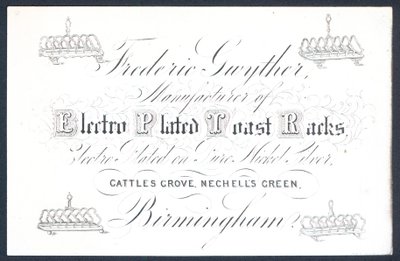 Frederic Gwyther,
Manufacturer of
Electro Plated Toast Racks,
Electro Plated on Pure Nickel Silver,
CATTLES GROVE, NECHELLS GREEN,
Birmingham.